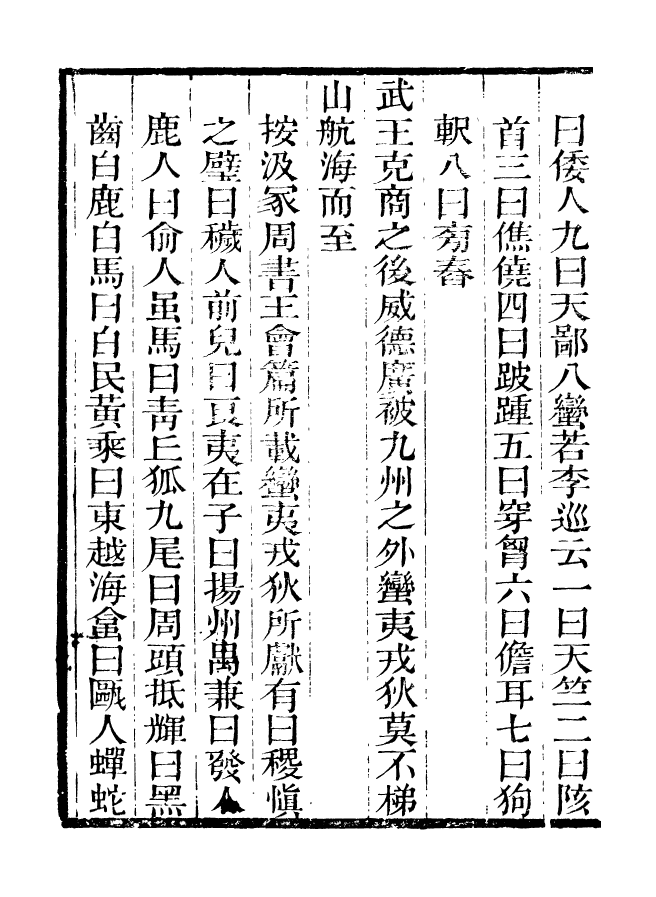 曰倭人九曰天鄙八蠻若李巡云一曰天竺二曰陔
首三曰僬僥四曰跛踵五曰穿胷六曰儋耳七曰狗
軹八曰旁舂
武王克商之後威德廣被九州之外蠻夷戎狄莫不梯
山航海而至
按汲冢周書王會篇所載蠻夷戎狄所獻有曰稷慎
之麈曰穢人前兒曰良夷在子曰揚州禺兼曰發人
鹿人曰俞人虽馬曰靑丘狐九尾曰周頭抵輝曰黑
齒白鹿白馬曰白民黃乘曰東越海畣曰甌人蟬蛇